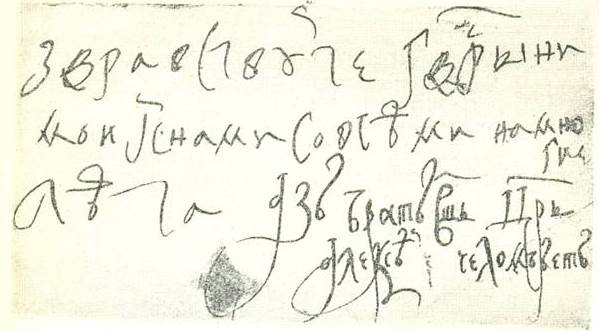 здравствꙋте гдрыни
мои снами совсѣми намно
гие
лѣта азъ братъ вшъ црь
алексѣ челомъ бьетъ